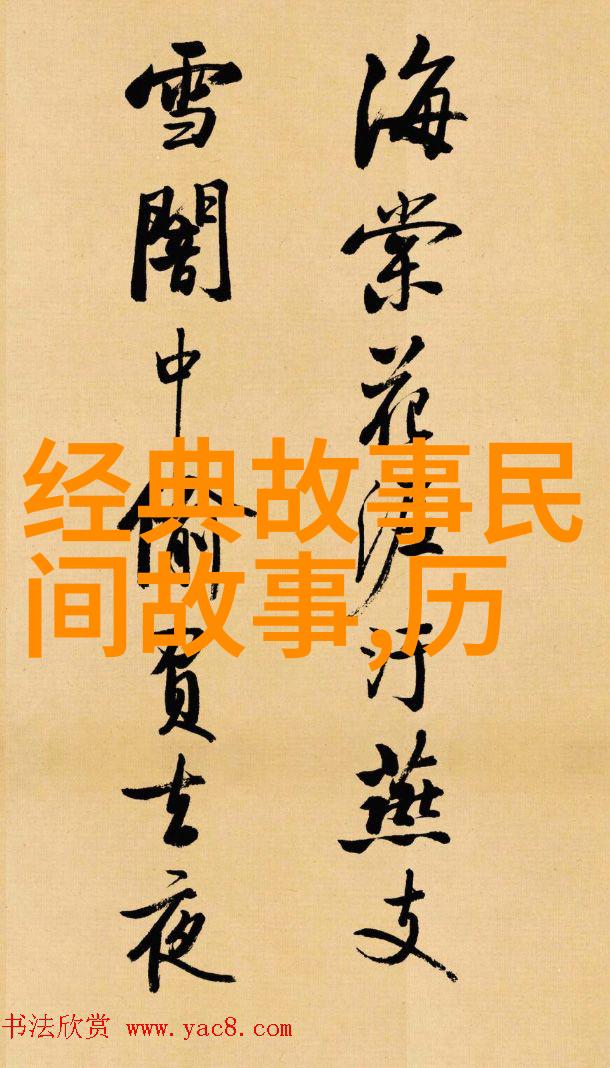 海棠花泥汙燕支
雪闇中偷負去夜
经典故事民
间故事,历
书法欣赏 www.yac8.com